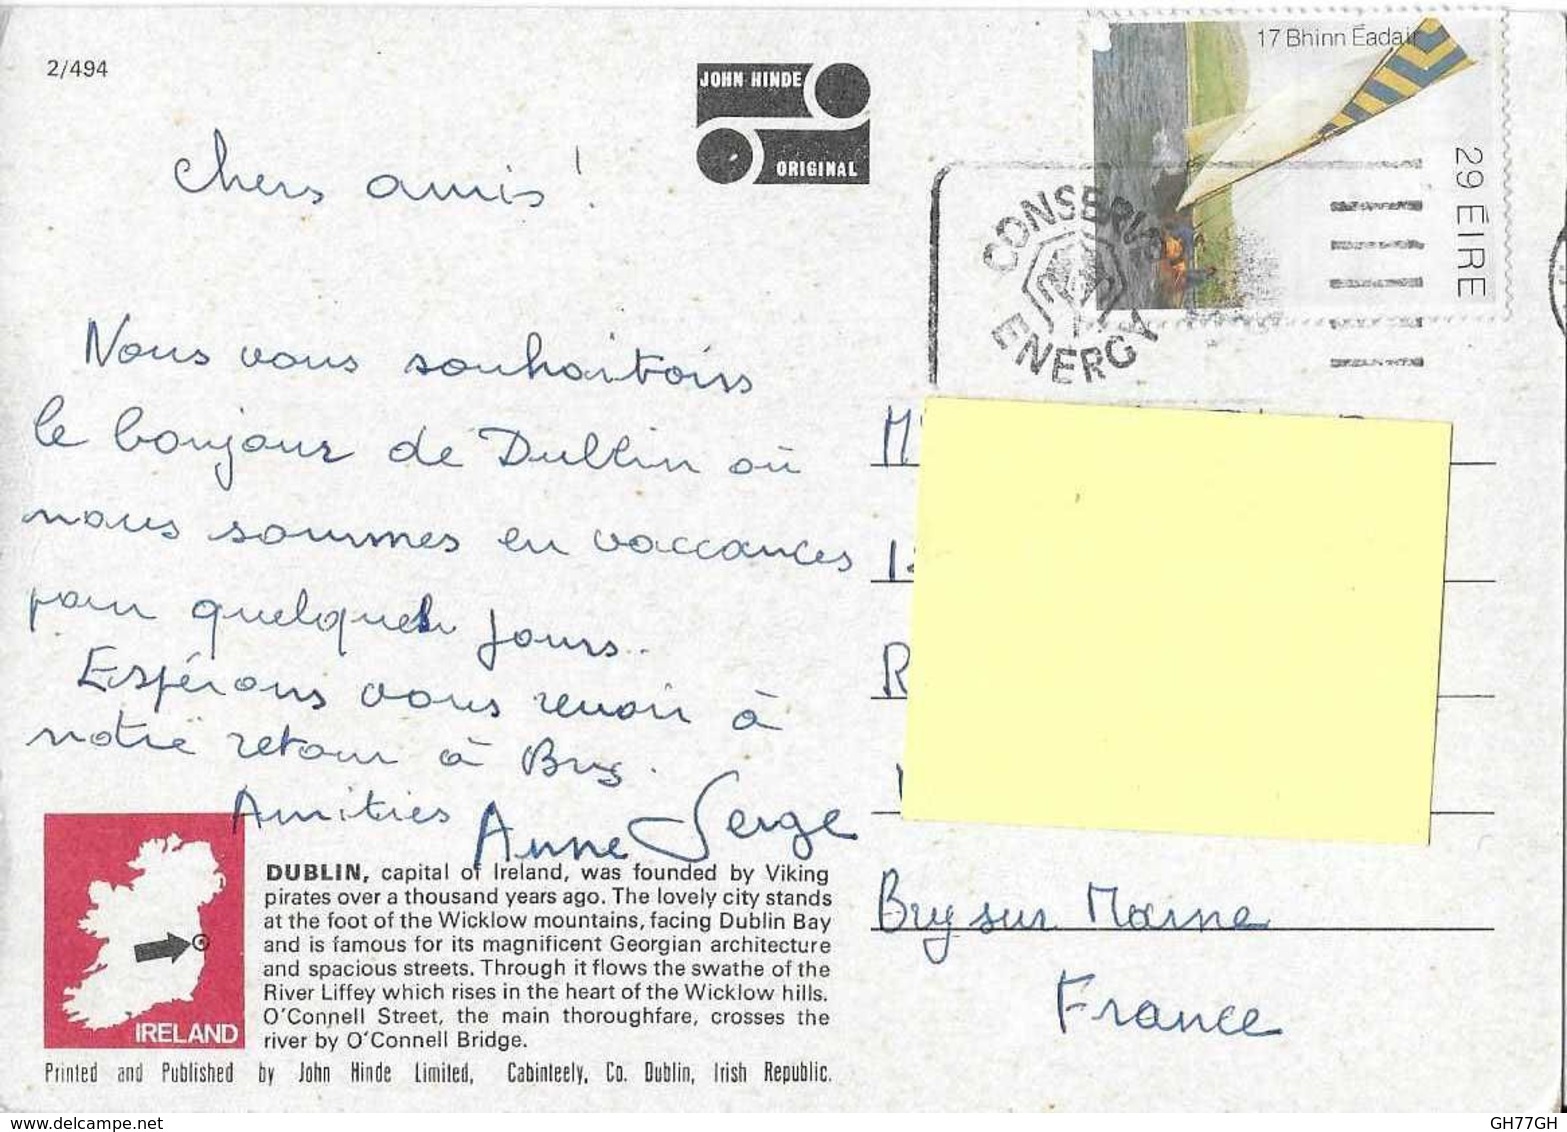 2/494
JOHN HINDE
ORIGINAL
17 Bhinn Éadair
29 ÉIRE
CONSERVE
ENERGY
Chers amis !
Nous vous souhaitoiss
le bonjour de Dublin où
nous sommes en vaccances
pour quelques jours..
Espérons vous revoir à
notre retour à Bry.
Amitiés Anne Serge
DUBLIN, capital of Ireland, was founded by Viking
pirates over a thousand years ago. The lovely city stands
at the foot of the Wicklow mountains, facing Dublin Bay
and is famous for its magnificent Georgian architecture
and spacious streets. Through it flows the swathe of the
River Liffey which rises in the heart of the Wicklow hills.
O'Connell Street, the main thoroughfare, crosses the
river by O'Connell Bridge.
IRELAND
Printed and Published by John Hinde Limited, Cabinteely, Co. Dublin, Irish Republic.
Bry sur Marne
France
GH77GH